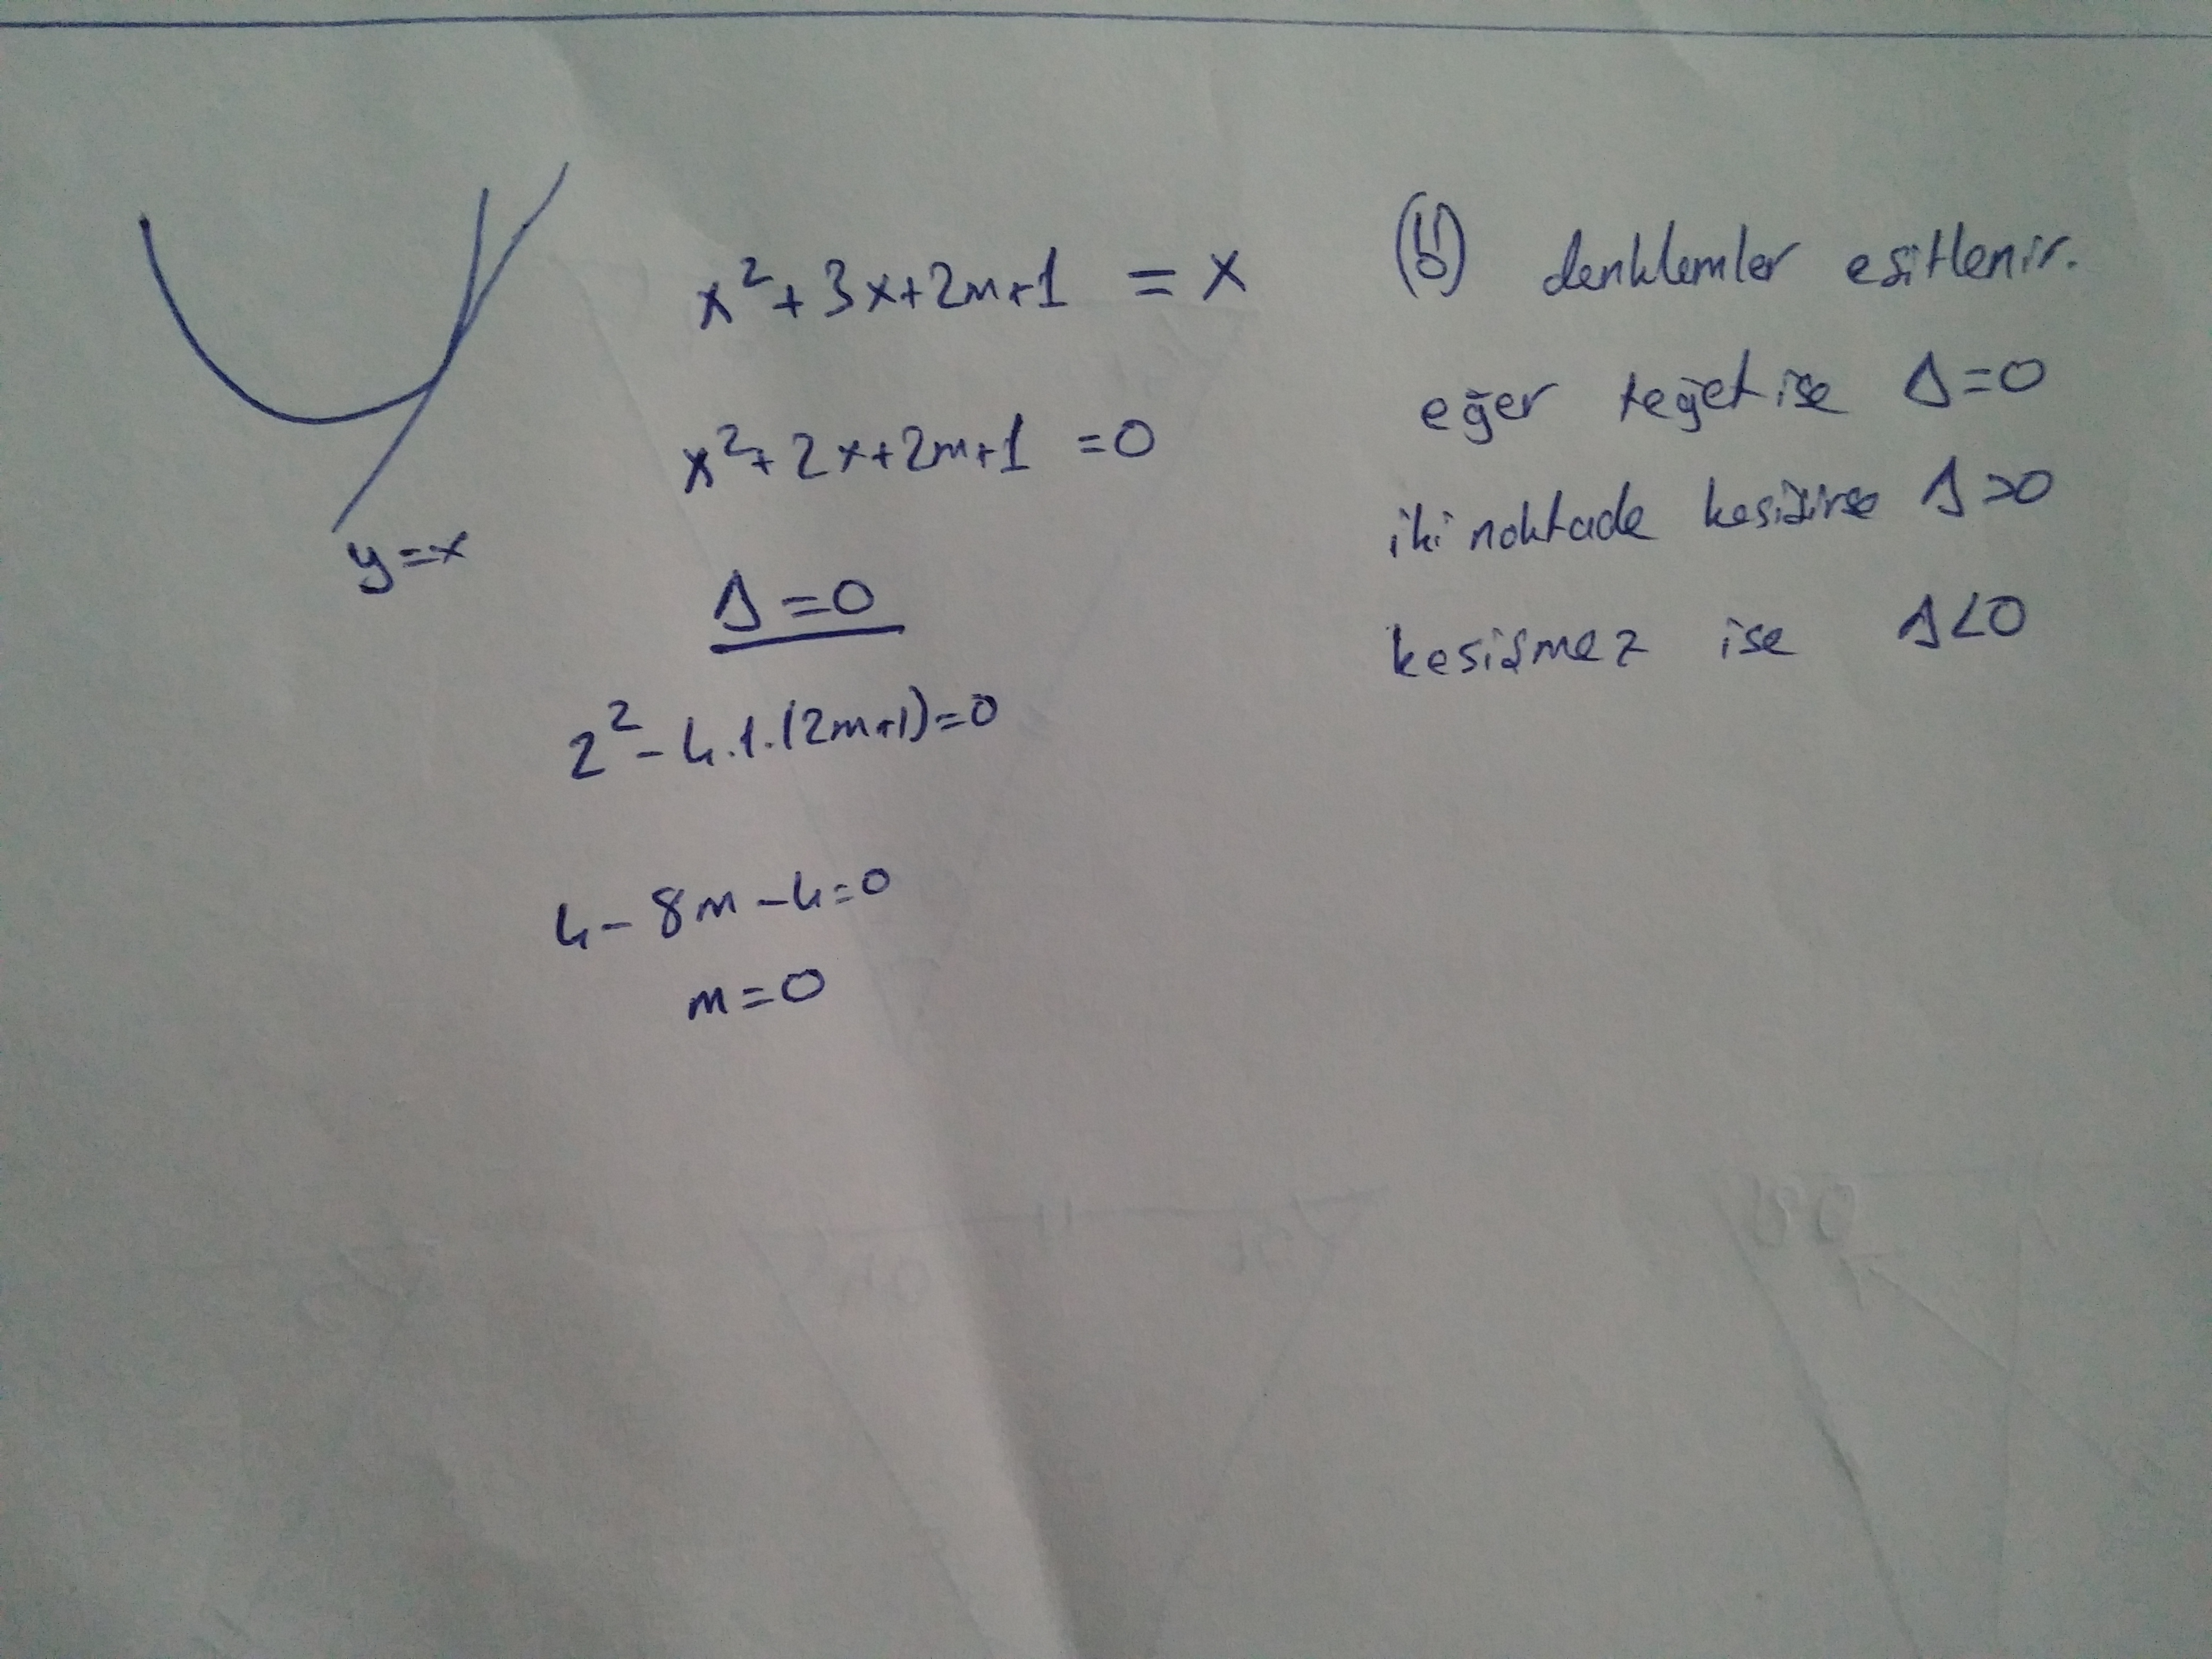 y=x
x²+3x+2m+1 = x
x²+2x+2m+1 =0
Δ=0
2²-4.1.(2m+1)=0
4-8m-4=0
m=0
denklemler eşitlenir.
eğer teğet ise Δ=0
iki noktada kesişirse Δ>0
kesişmez ise Δ<0